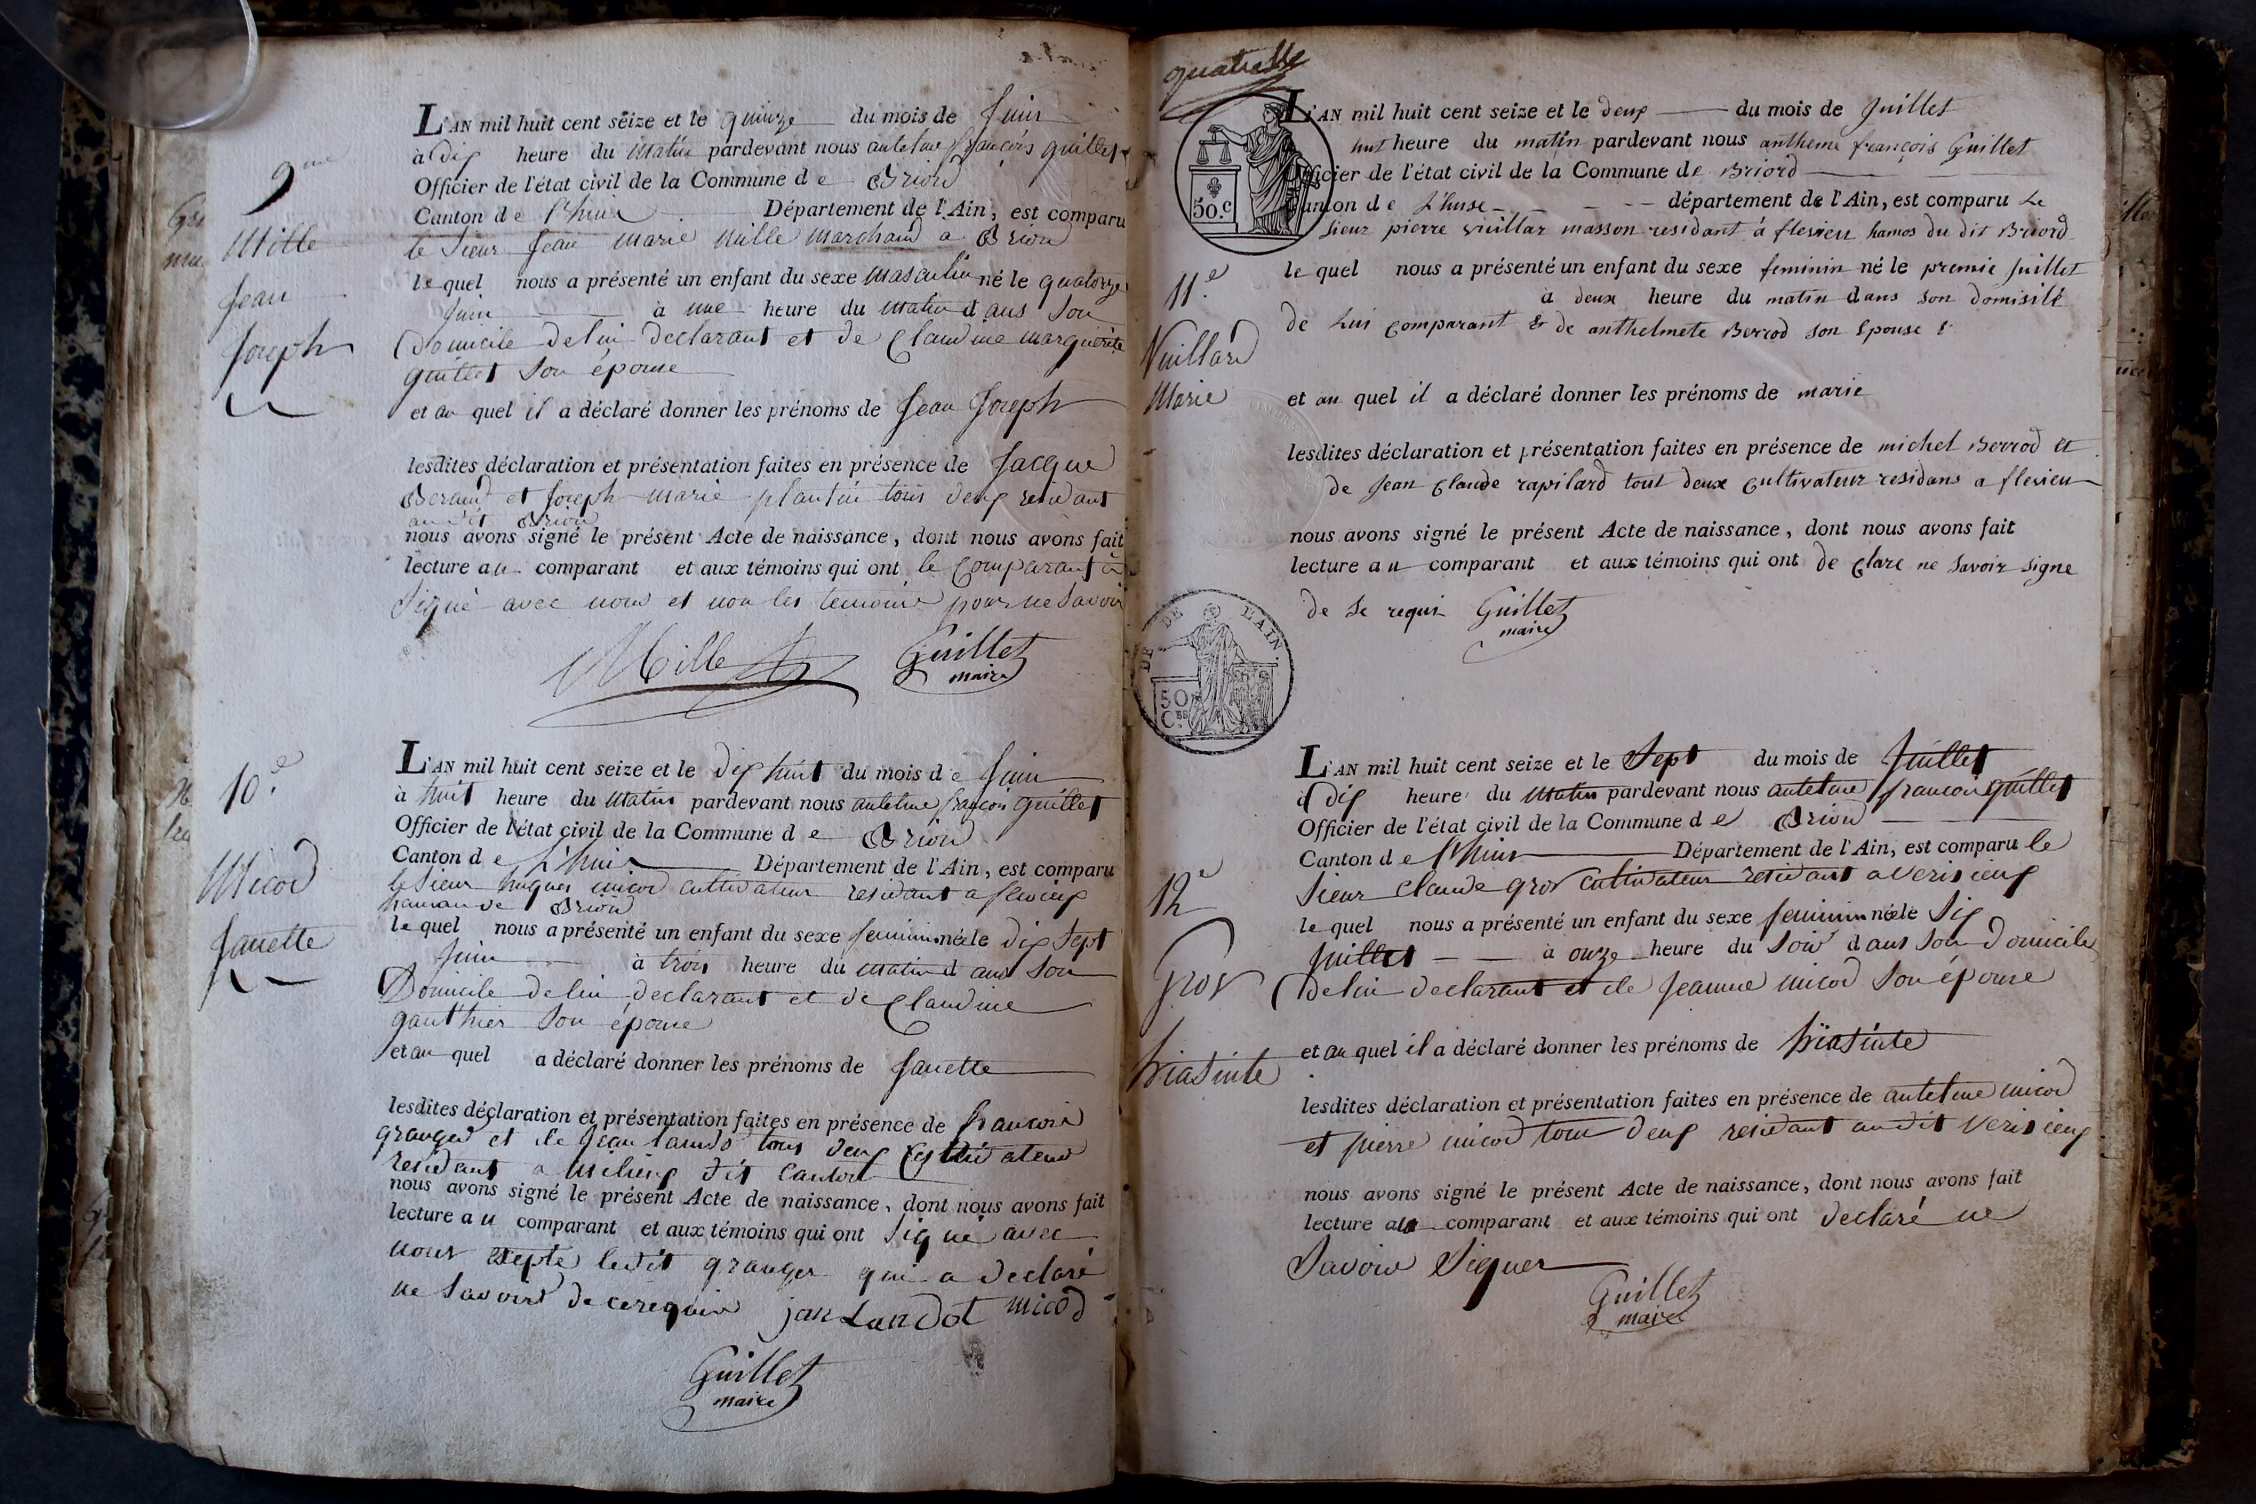 9me
Mille
Jean
Joseph
L'AN mil huit cent seize et le quinze du mois de Juin
à dix heure du matin pardevant nous antelme françois guillet
Officier de l'état civil de la Commune de Briord
Canton de l'huis Département de l'Ain, est comparu
le Sieur Jean marie Mille marchand a Briord
lequel nous a présenté un enfant du sexe masculin né le quatorze
Juin à une heure du matin dans son
Domicile de lui declarant et de Claudine marguerite
guillet son épouse
et au quel il a déclaré donner les prénoms de Jean Joseph
lesdites déclaration et présentation faites en présence de Jacque
Beraud et Joseph marie plantin tous deux residant
au dit Briord
nous avons signé le présent Acte de naissance, dont nous avons fait
lecture au comparant et aux témoins qui ont le Comparant à
Signé avec nous et non les temoins pour ne Savoir
Mille Guillet
maire
10.e
Micod
Janette
L'AN mil huit cent seize et le dix huit du mois de Juin
à huit heure du matin pardevant nous antelme françois guillet
Officier de l'état civil de la Commune de Briord
Canton de L'huis Département de l'Ain, est comparu
le Sieur hugues micod cultivateur residant a
hamau de Briord
lequel nous a présenté un enfant du sexe feminin née le dix Sept
Juin à trois heure du matin dans son
Domicile de lui declarant et de Claudine
gauthier son épouse
et au quel a déclaré donner les prénoms de Janette
lesdites déclaration et présentation faites en présence de francois
granger et de Jean lando tous deux Cultivateur
residant a dit Canton
nous avons signé le présent Acte de naissance, dont nous avons fait
lecture au comparant et aux témoins qui ont Signé avec
nous ledit granger qui a declaré
ne Savoir de ce requis jan Landot micod
Guillet
maire
quatre
50.c
11.e
Vuillard
Marie
L'AN mil huit cent seize et le deux du mois de Juillet
huit heure du matin pardevant nous anthelme françois Guillet
Officier de l'état civil de la Commune de Briord
Canton de L'huse département de l'Ain, est comparu Le
Sieur pierre vuillar masson residant á flevieu hamos du dit Briord
le quel nous a présenté un enfant du sexe feminin né le premie Juillet
à deux heure du matin dans son domisilé
de Lui comparant & de anthelmete Berrod son Epouse
et au quel il a déclaré donner les prénoms de marie
lesdites déclaration et présentation faites en présence de michel Berrod et
de Jean Claude rapilard tout deux cultivateur residans a flevieu
nous avons signé le présent Acte de naissance, dont nous avons fait
lecture au comparant et aux témoins qui ont de clare ne savoir signe
de Se requi Guillet
maire
DE DE L'AIN.
50
CES
12e
Gros
hiasinte
L'AN mil huit cent seize et le Sept du mois de Juillet
à dix heure du matin pardevant nous antelme francois guillet
Officier de l'état civil de la Commune de Briord
Canton de l'huis Département de l'Ain, est comparu le
Sieur Claude gros cultivateur residant a verisieux
le quel nous a présenté un enfant du sexe feminin née le Six
Juillet à onze heure du Soir dans Son Domicile
de lui declarant et de Jeanne micod Son épouse
et au quel il a déclaré donner les prénoms de hiasinte
lesdites déclaration et présentation faites en présence de antelme micod
et pierre micod tous deux residant au dit verisieux
nous avons signé le présent Acte de naissance, dont nous avons fait
lecture au comparant et aux témoins qui ont declaré ne
Savoir Signer
Guillet
maire